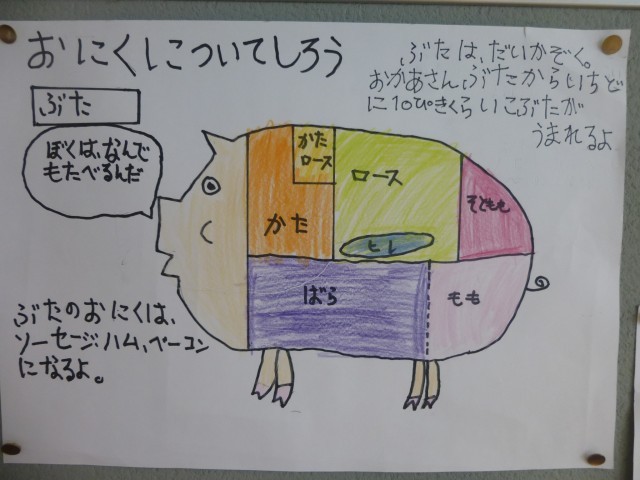 おにくについてしろう
ぶた
ぼくは、なんで
もたべるんだ
ぶたは、だいかぞく。
おかあさんぶたからいちど
に10ぴきくらいこぶたが
うまれるよ
かた
ロース
ロース
そともも
かた
ヒレ
ばら
もも
ぶたのおにくは、
ソーセージ、ハム、ベーコン
になるよ。